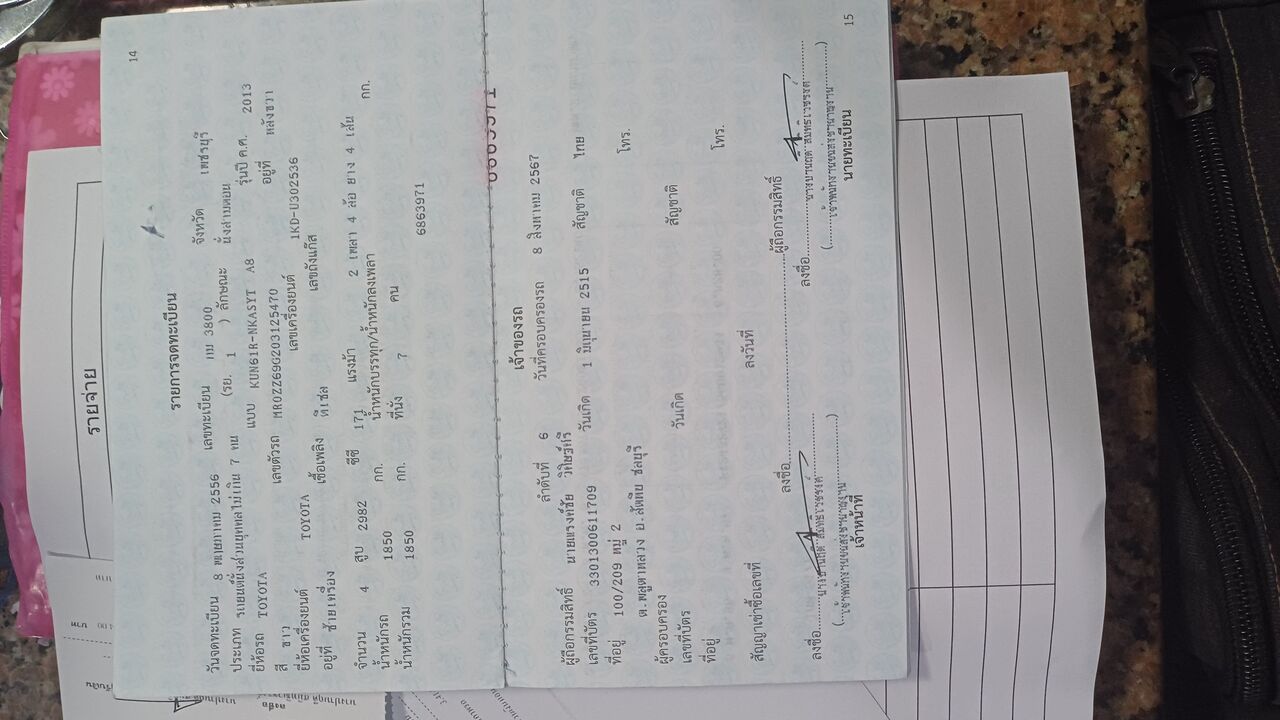 14
รายการจดทะเบียน
วันจดทะเบียน 8 พฤษภาคม 2556 เลขทะเบียน กบ 3800 จังหวัด เพชรบุรี
ประเภท รถยนต์นั่งส่วนบุคคลไม่เกิน 7 คน (รย. 1 ) ลักษณะ นั่งสามตอน
ยี่ห้อรถ TOYOTA แบบ KUN61R-NKASYT A8 รุ่นปี ค.ศ. 2013
สี ขาว เลขตัวรถ MR0ZZ69G203125470 อยู่ที่ หลังขวา
ยี่ห้อเครื่องยนต์ TOYOTA เลขเครื่องยนต์ 1KD-U302536
อยู่ที่ ซ้ายเครื่อง เชื้อเพลิง ดีเซล เลขถังแก๊ส
จำนวน 4 สูบ 2982 ซีซี 171 แรงม้า 2 เพลา 4 ล้อ ยาง 4 เส้น
น้ำหนักรถ 1850 กก. น้ำหนักบรรทุก/น้ำหนักลงเพลา กก.
น้ำหนักรวม 1850 กก. ที่นั่ง 7 คน
6863971
เจ้าของรถ
ลำดับที่ 6 วันที่ครอบครองรถ 8 สิงหาคม 2567
ผู้ถือกรรมสิทธิ์
เลขที่บัตร 3301300611709 วันเกิด 1 มิถุนายน 2515 สัญชาติ ไทย
ที่อยู่ 100/209 หมู่ 2 โทร.
ต.พลูตาหลวง อ.สัตหีบ ชลบุรี
ผู้ครอบครอง
เลขที่บัตร วันเกิด สัญชาติ
ที่อยู่ โทร.
สัญญาเช่าซื้อเลขที่ ลงวันที่
ลงชื่อ ผู้ถือกรรมสิทธิ์
ลงชื่อ ลงชื่อ
เจ้าหน้าที่ นายทะเบียน
15
รายจ่าย